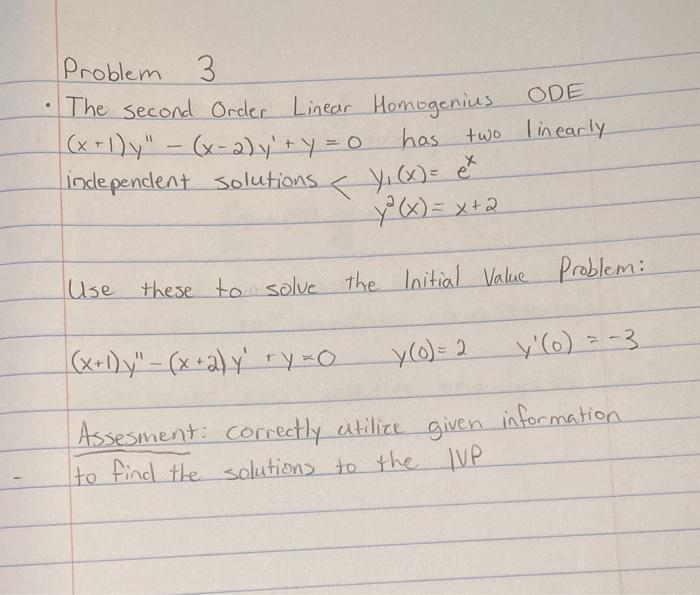 Problem 3
• The second Order Linear Homogenius ODE
(x+1)y" - (x-2)y' + y = 0 has two linearly
independent solutions < y₁(x) = eˣ
y²(x) = x+2
Use these to solve the Initial Value Problem:
(x+1)y" - (x+2)y' + y = 0 y(0) = 2 y'(0) = -3
Assesment: correctly utilize given information
to find the solutions to the IVP